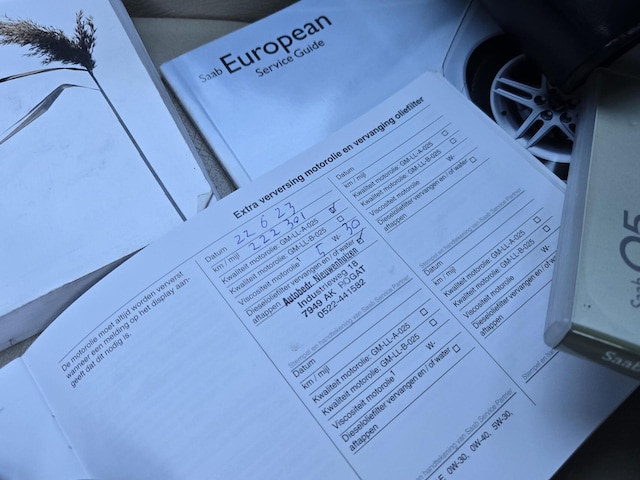 Saab European
Service Guide
Extra verversing motorolie en vervanging oliefilter
De motorolie moet altijd worden ververst
wanneer een melding op het display aan-
geeft dat dit nodig is.
Datum 22 6 23
km / mijl 222 301
Kwaliteit motorolie: GM-LL-A-025
Kwaliteit motorolie: GM-LL-B-025
Viscositeit motorolie¹ 5 W- 30
Dieseloliefilter vervangen en / of water
aftappen
Autobedr. Nieuwenhuizen
Industrieweg
7949 AK ROGAT
0522-441582
Stempel en handtekening van Saab Service Partner
Datum
km / mijl
Kwaliteit motorolie: GM-LL-A-025
Kwaliteit motorolie: GM-LL-B-025
Viscositeit motorolie¹
Dieseloliefilter vervangen en / of water
aftappen
en handtekening van Saab Service Partner
Datum
km / mijl
Kwaliteit motorolie: GM-LL-A-025
Kwaliteit motorolie: GM-LL-B-025
Viscositeit motorolie W-
Dieseloliefilter vervangen en / of water
aftappen
Stempel en handtekening van Saab Service Partner
Datum
km / mijl
Kwaliteit motorolie: GM-LL-A-025
Kwaliteit motorolie: GM-LL-B-025
Viscositeit motorolie W-
Dieseloliefilter vervangen en / of
aftappen
Stempel en
0W-30, 0W-40, 5W-30.
Saab
Saab